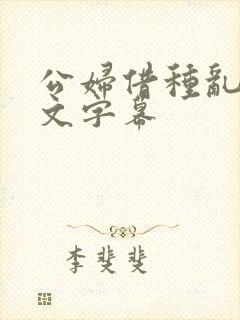 公婦借種亂
文字幕
李斐斐